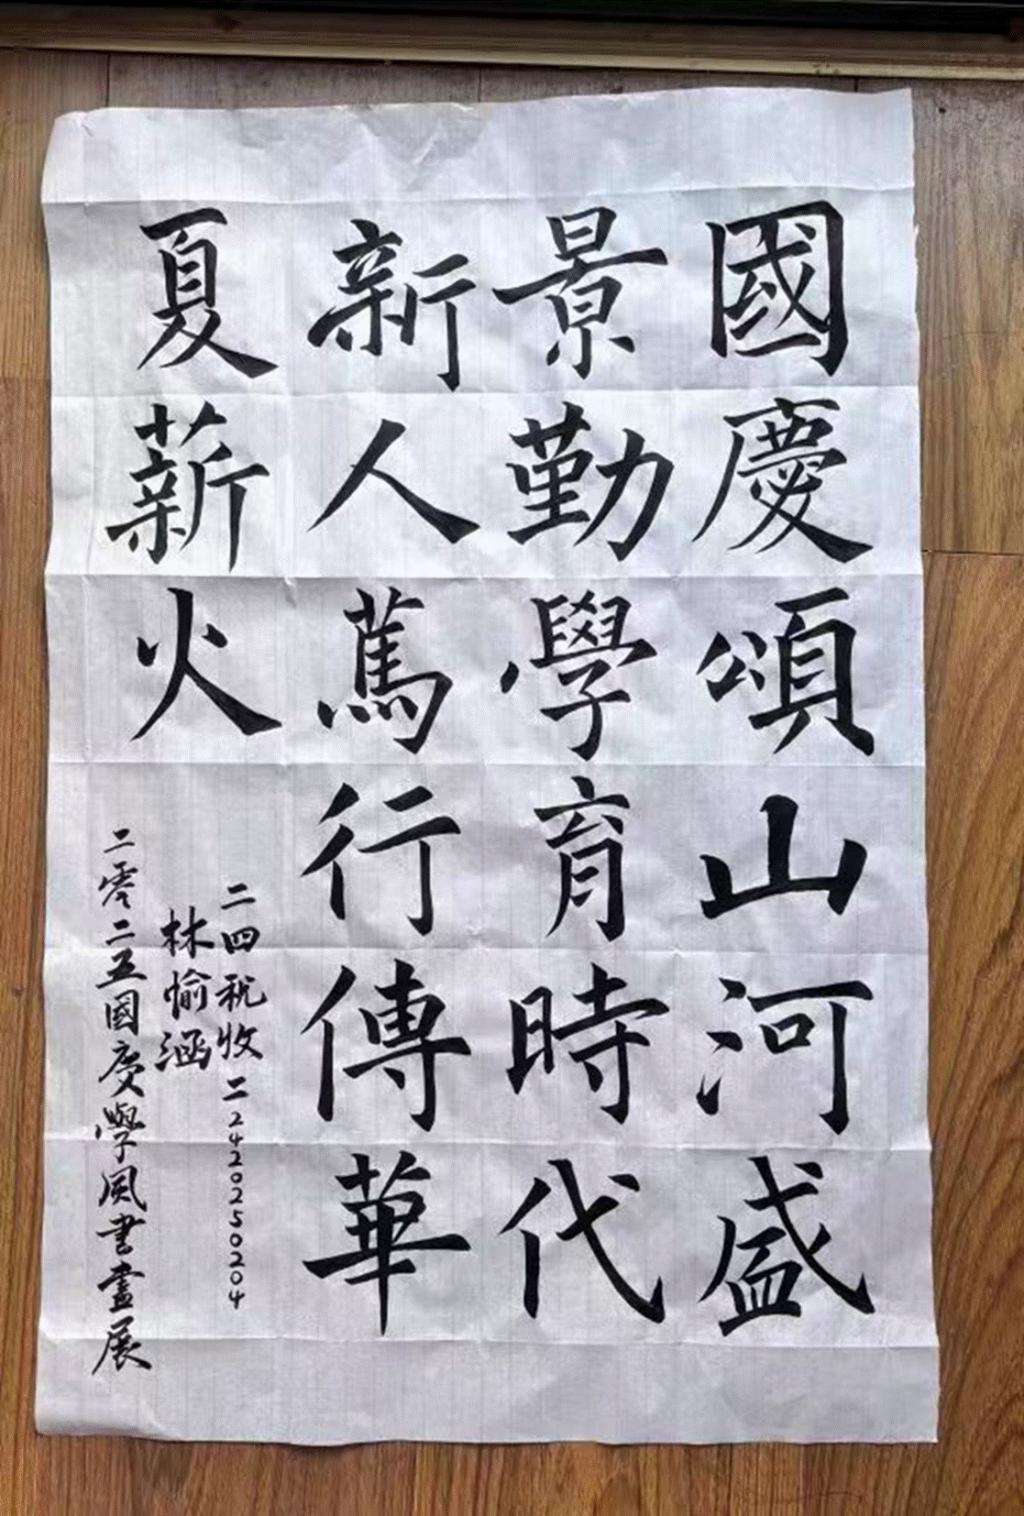 國慶頌山河盛
景勤學育時代
新人篤行傳華
夏薪火
二四税收二2420250204
林愉涵
二零二五國慶學風書畫展